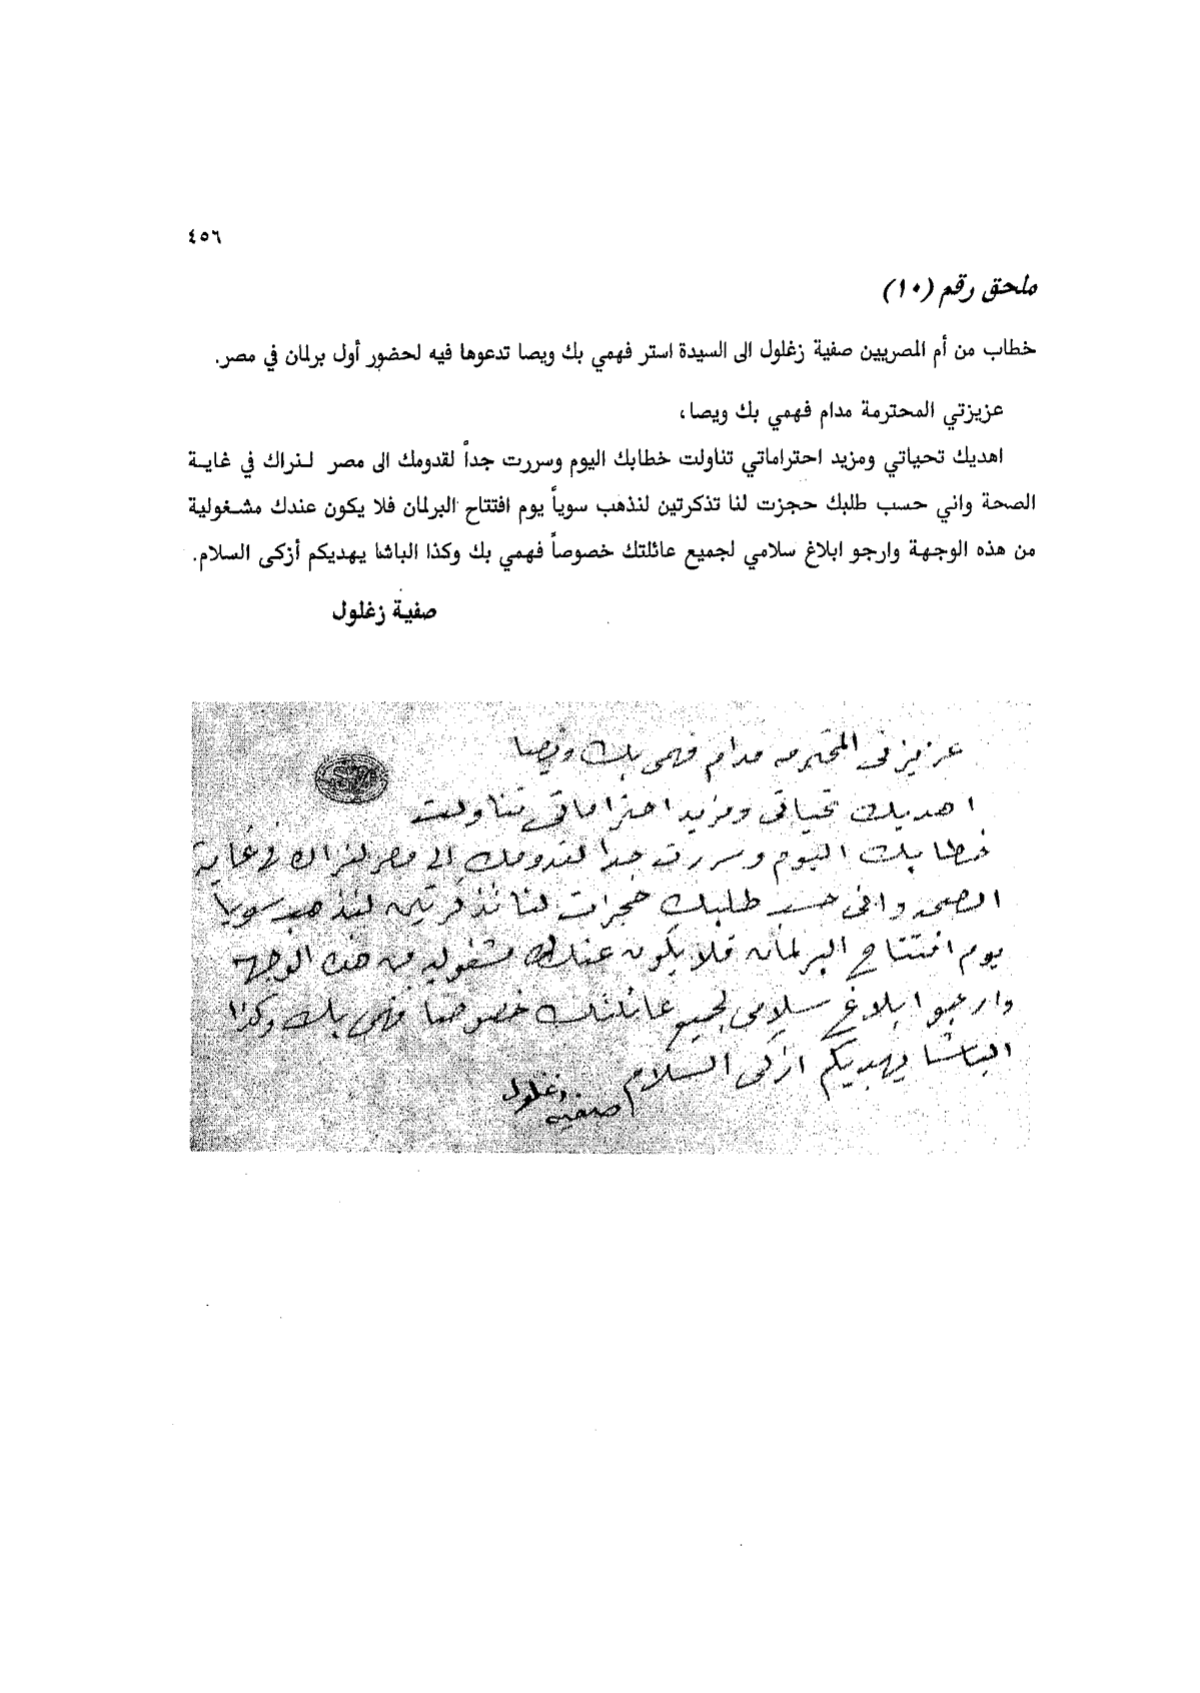 ٤٥٦
ملحق رقم (١٠)
خطاب من أم المصريين صفية زغلول الى السيدة استر فهمي بك ويصا تدعوها فيه لحضور أول برلمان في مصر.
عزيزتي المحترمة مدام فهمي بك ويصا،
اهديك تحياتي ومزيد احتراماتي تناولت خطابك اليوم وسررت جداً لقدومك الى مصر لنراك في غاية
الصحة واني حسب طلبك حجزت لنا تذكرتين لنذهب سوياً يوم افتتاح البرلمان فلا يكون عندك مشغولية
من هذه الوجهة وارجو ابلاغ سلامي لجميع عائلتك خصوصاً فهمي بك وكذا الباشا يهديكم أزكى السلام.
صفية زغلول
عزيزتى المحترمه مدام فهمى بك ويصا
اهديك تحياتى ومزيد احتراماتى تناولت
خطابك اليوم وسررت جدا لقدومك الى مصر لنراك فى غاية
الصحه وانى حسب طلبك حجزت لنا تذكرتين لنذهب سوياً
يوم افتتاح البرلمان فلا يكون عندك مشغوليه من هذه الوجهه
وارجو ابلاغ سلامى لجميع عائلتك خصوصا فهمى بك وكذا
الباشا يهديكم ازكى السلام
صفيه زغلول